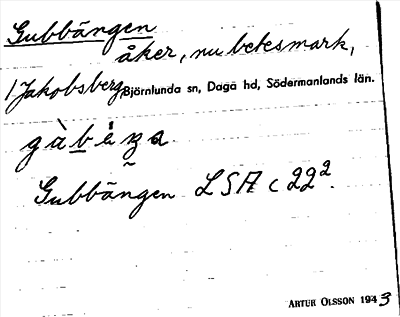 Gubbängen
åker, nu betesmark,
/ Jakobsberg, Björnlunda sn, Daga hd, Södermanlands län.
Gubbängen LSA c 22².
ARTUR OLSSON 1943